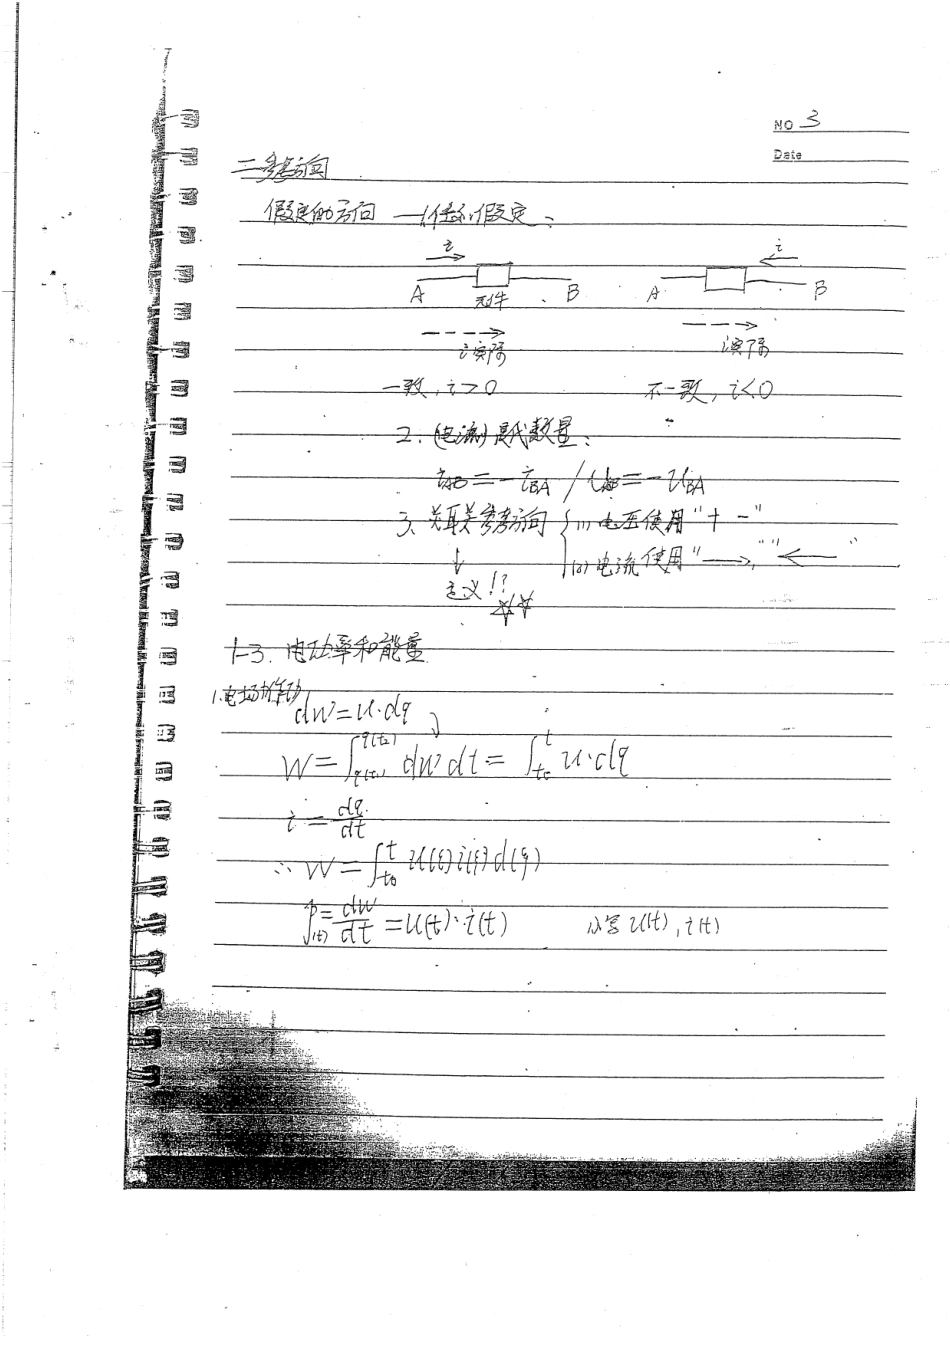 NO 3
Date
二 参考方向
假定的方向 — 任意假定、
i i
A 元件 B A B
i实际 i实际
一致，i>0 不一致，i<0
2. (电流) 是代数量：
iAB=-iBA / uAB=-uBA
3、关联参考方向 { (1) 电压使用“+ -”
(2) 电流使用“→”，“←”
↓
定义!?
1-3. 电功率和能量
1.电场力作功
dw=u·dq
W=∫_{q(t0)}^{q(t)} dw dt = ∫_{t0}^{t} u·dq
i=dq/dt
∴W=∫_{t0}^{t} u(ξ)i(ξ)d(ξ)
p(t)=dw/dt=u(t)·i(t) 小写 u(t), i(t)